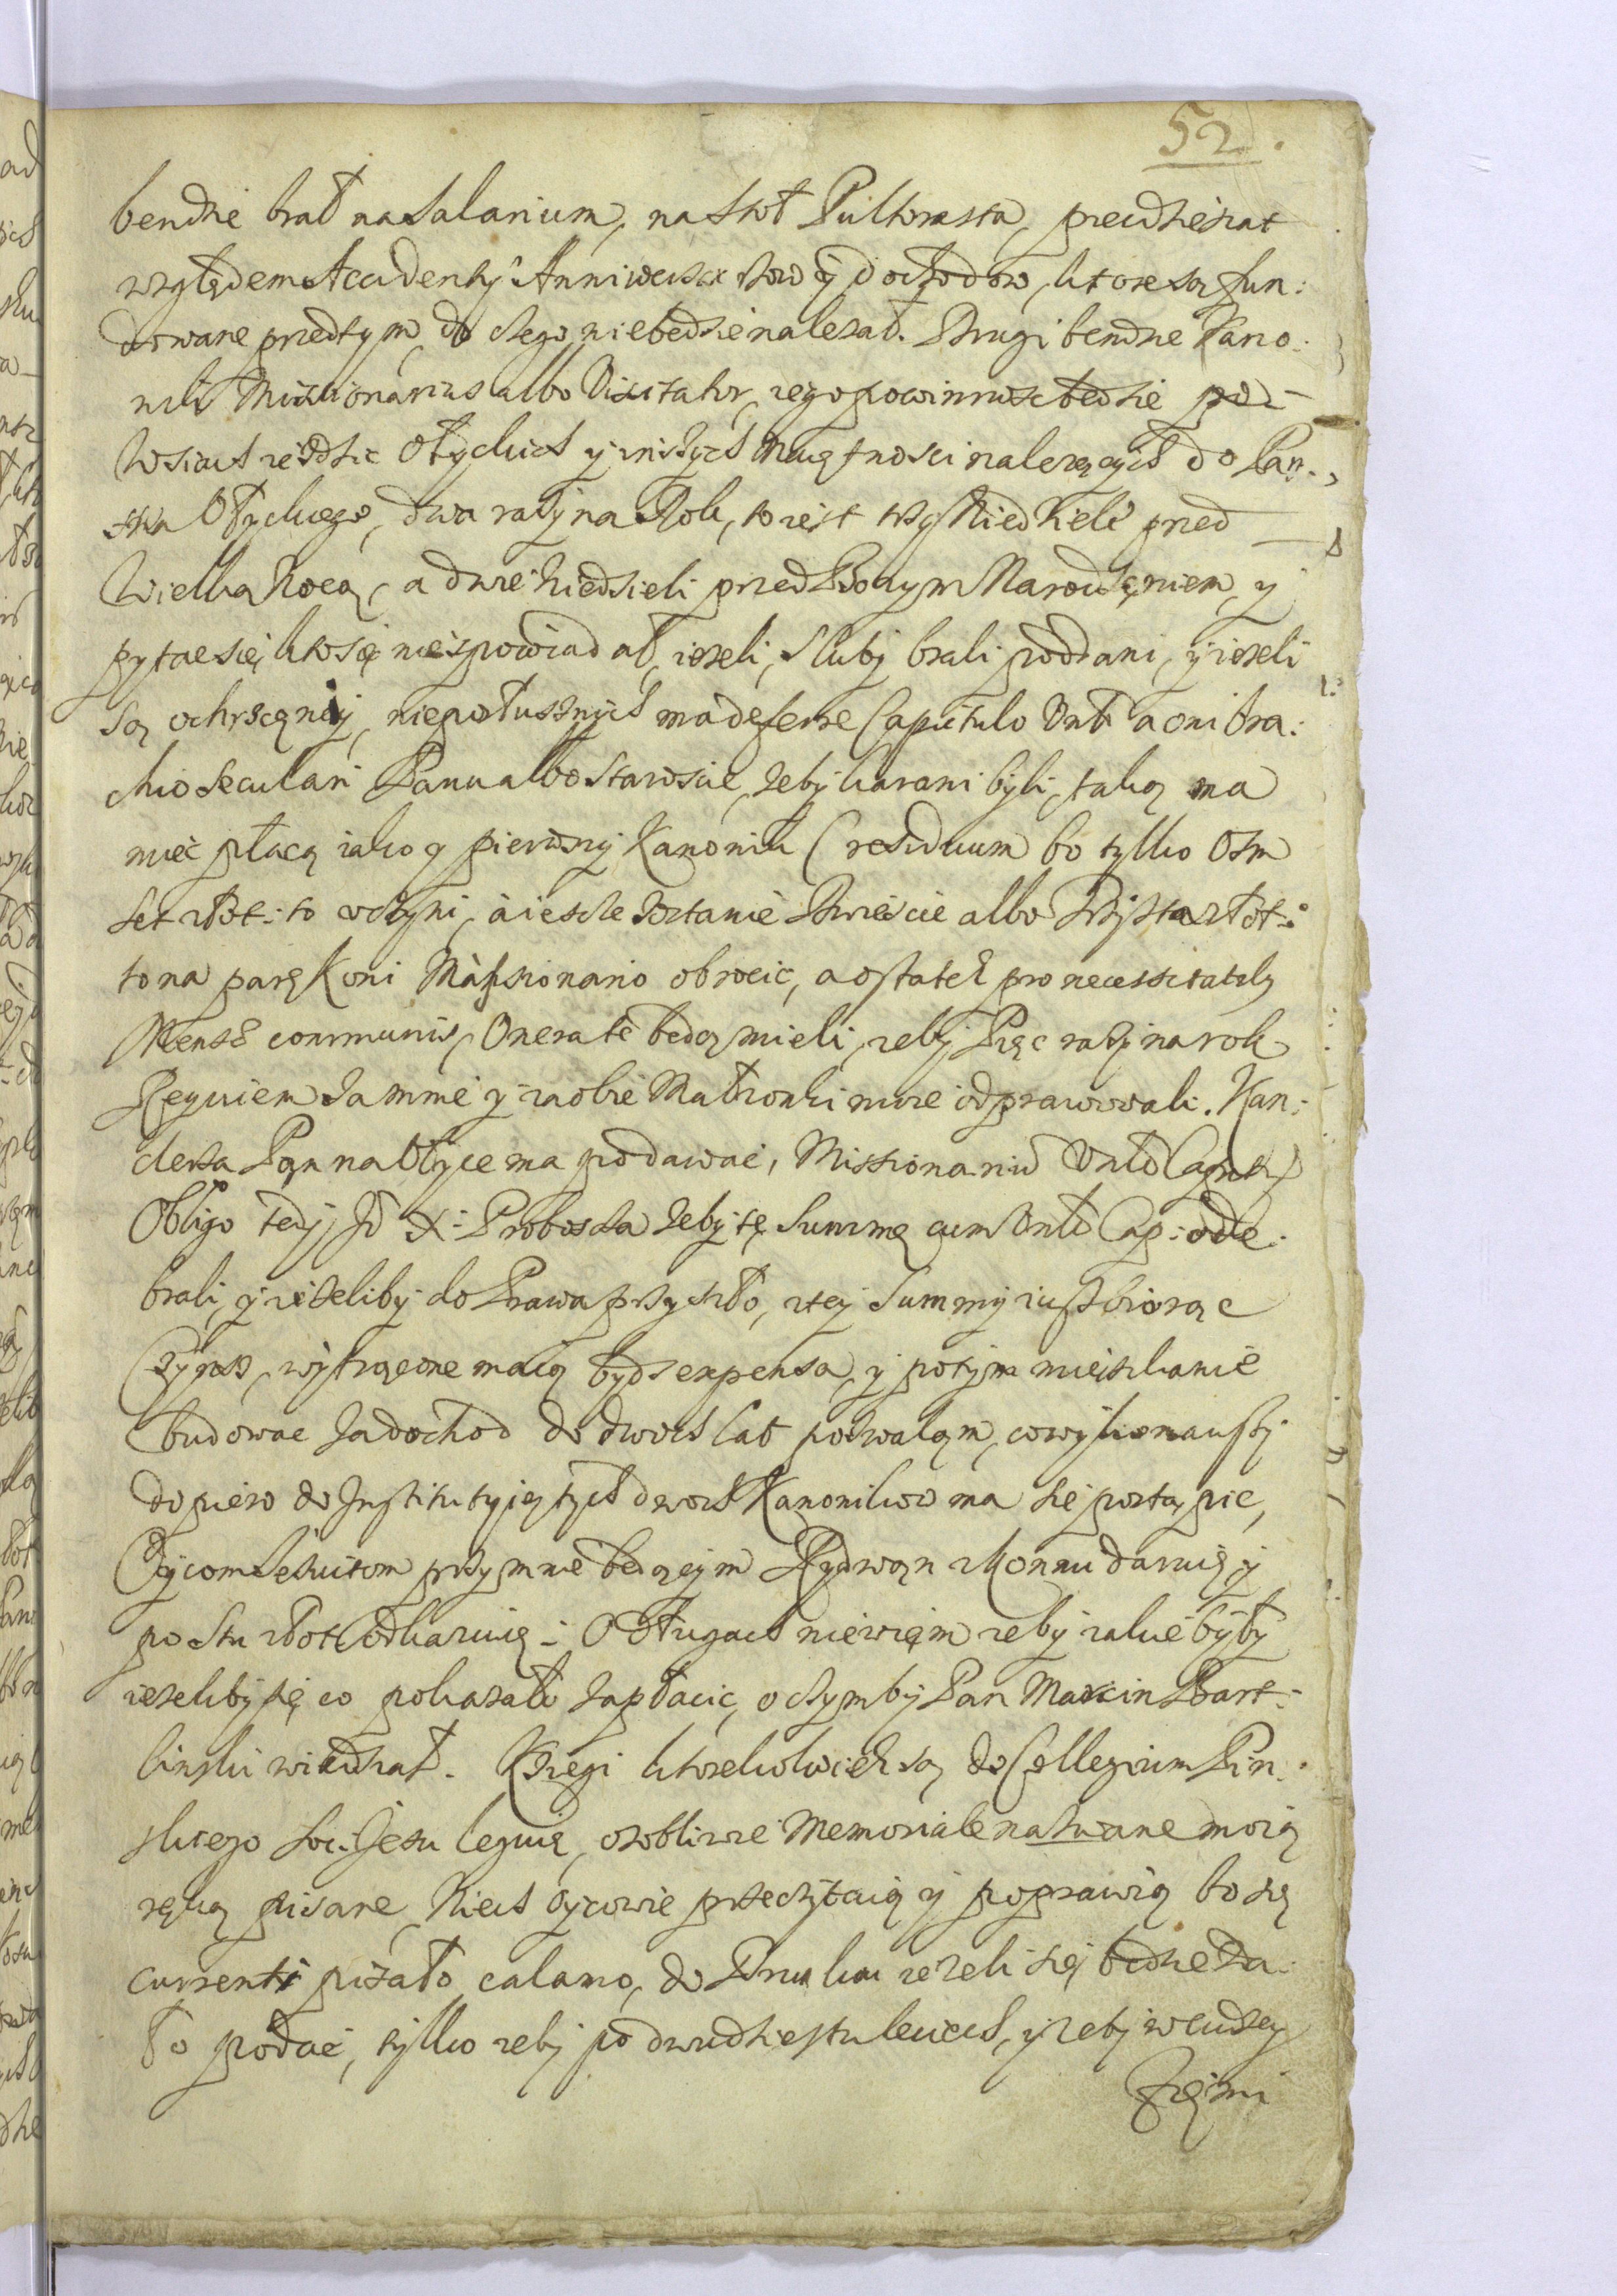 52.
bendzie brał na Salarium, na Stoł Pułtorasta, pieudziesiat
względem Accidenty Anniwersarzow y dochodow, ktore są fun:
dowane przedtym, do czego niebędzie nalezał. Drugi bendzie Kano:
nik Missionarius albo Visitator, iego powinnosc będzie po
Wsiach ieździc Ołyckich y inszych Maiętnosci nalezących do Pan:
stwa Ołyckiego, dwa razy na Rok, to iest trzy Niedzieli przed
Wielką Nocą, a dwie Niedzieli przed Bozym Narodzeniem, y
pytac się kto się niespowiadał, iezeli Sluby brali poddani, y iezeli
są ochrzczeni, nieposłusznych ma deferre Capitulo Vnto a oni bra:
chio Seculari Panu albo Staroscie, zeby karani byli, taką ma
miec płacą iako y pierwszy Kanonik (residuum bo tylko Osm
set złot: to uczyni, a ieszcze zostanie Dwiescie albo Trzysta złot:
to na parę Koni Missionario obrocic, a ostatek pro necessitatibus
Mensæ communis, Onera te będą mieli, zeby Pięc razy na rok
Requiem Za mnie y za obie Małzonki moie odprawowali. Kan:
clerza Pan na Ołyce ma podawac, Missionariu Vnto Capitulu
Obligo tedy Jo X: Proboscza zeby tę Summę cum Vnto Cap: ode:
brali, y iezeliby do Prawa przyszło, z tey Summy iusz biorąc
Czynsz, wytrącone maią bydz expensa, y potym mieszkanie
budowac Za dochod do dwoch lat pozwalam, co wykonawszy
dopiero do Institutyię tych dwoch Kanonikow ma się postąpic,
Oycom Jezuitom przy mnie będącym Rydwan z Konmi daruię y
po Stu złot: odkazuię: O długach niewiem zeby iakie były
iezeliby się co pokazało zapłacic, o czym by Pan Marcin Bart:
linski wiedział. Kięgi ktorekolwiek są do Collegium Pin:
skiego Soc: Jesu leguię, osobliwie Memoriale nazwane moią
ręką pisane, Niech oycowie przeczytaią y poprawią bo się
currenti pisało calamo, do Druku iezeli się będzie zda:
ło podac, tylko zeby po dwudziestu leciech, y zeby w cudzey
Ziemi